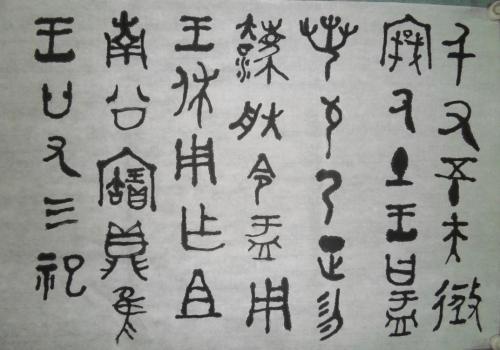 千又五十夫
氒土王曰盂
若敬乃正勿
灋朕令盂用
王休用乍且
南公寶鼎隹
王廿又三祀